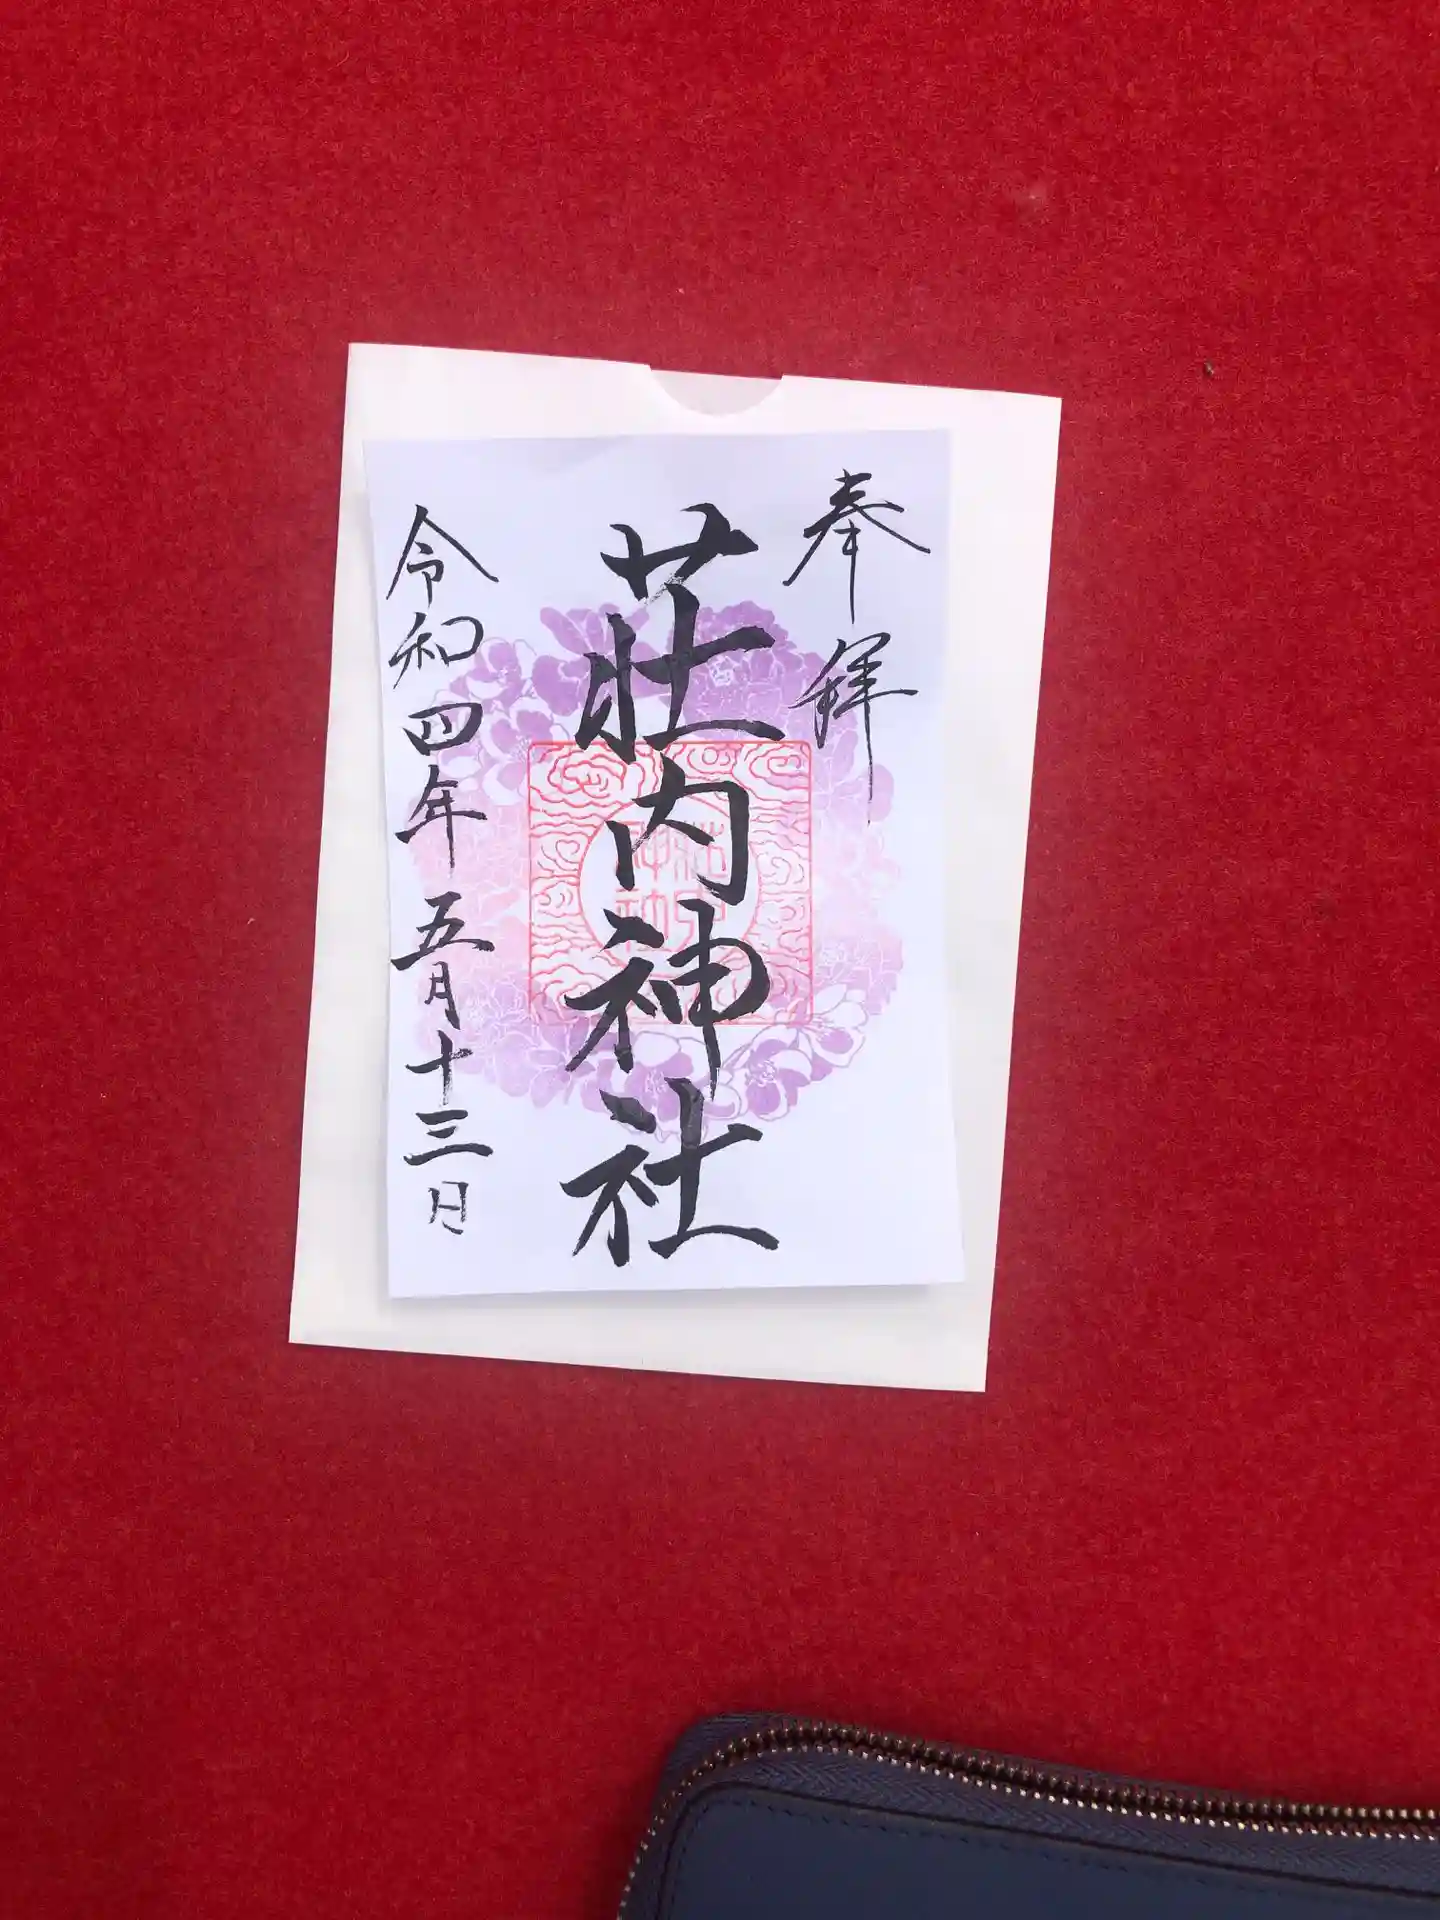 奉拝
荘内神社
令和四年五月十三日